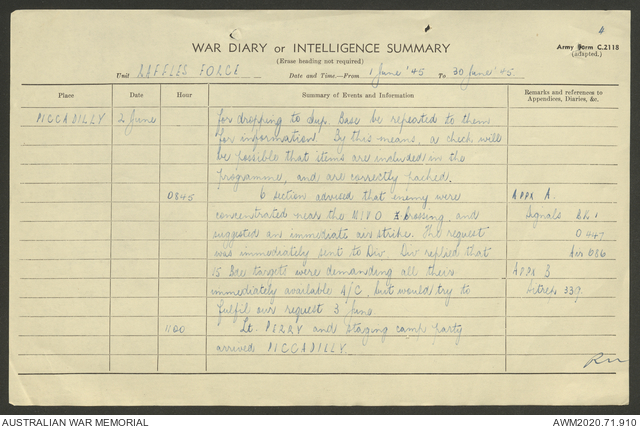 4
WAR DIARY or INTELLIGENCE SUMMARY
Army Form C.2118
(adapted.)
(Erase heading not required)
Unit RAFFLES FORCE Date and Time.—From 1 June '45 To 30 June '45
Place Date Hour Summary of Events and Information Remarks and references to Appendices, Diaries, &c.
PICCADILLY 2 June for dropping to Sup. Base be repeated to them
for information. By this means, a check will
be possible that items are included in the
programme, and are correctly packed.
0845 6 section advised that enemy were APPX A.
concentrated near the MIVO crossing, and Signals
suggested an immediate air strike. The request 0447
was immediately sent to Div. Div replied that 086
15 Bde targets were demanding all their APPX B
immediately available A/C, but would try to 339.
fulfil our request 3 June.
1100 Lt. PERRY and staging camp party
arrived PICCADILLY.
AUSTRALIAN WAR MEMORIAL AWM2020.71.910